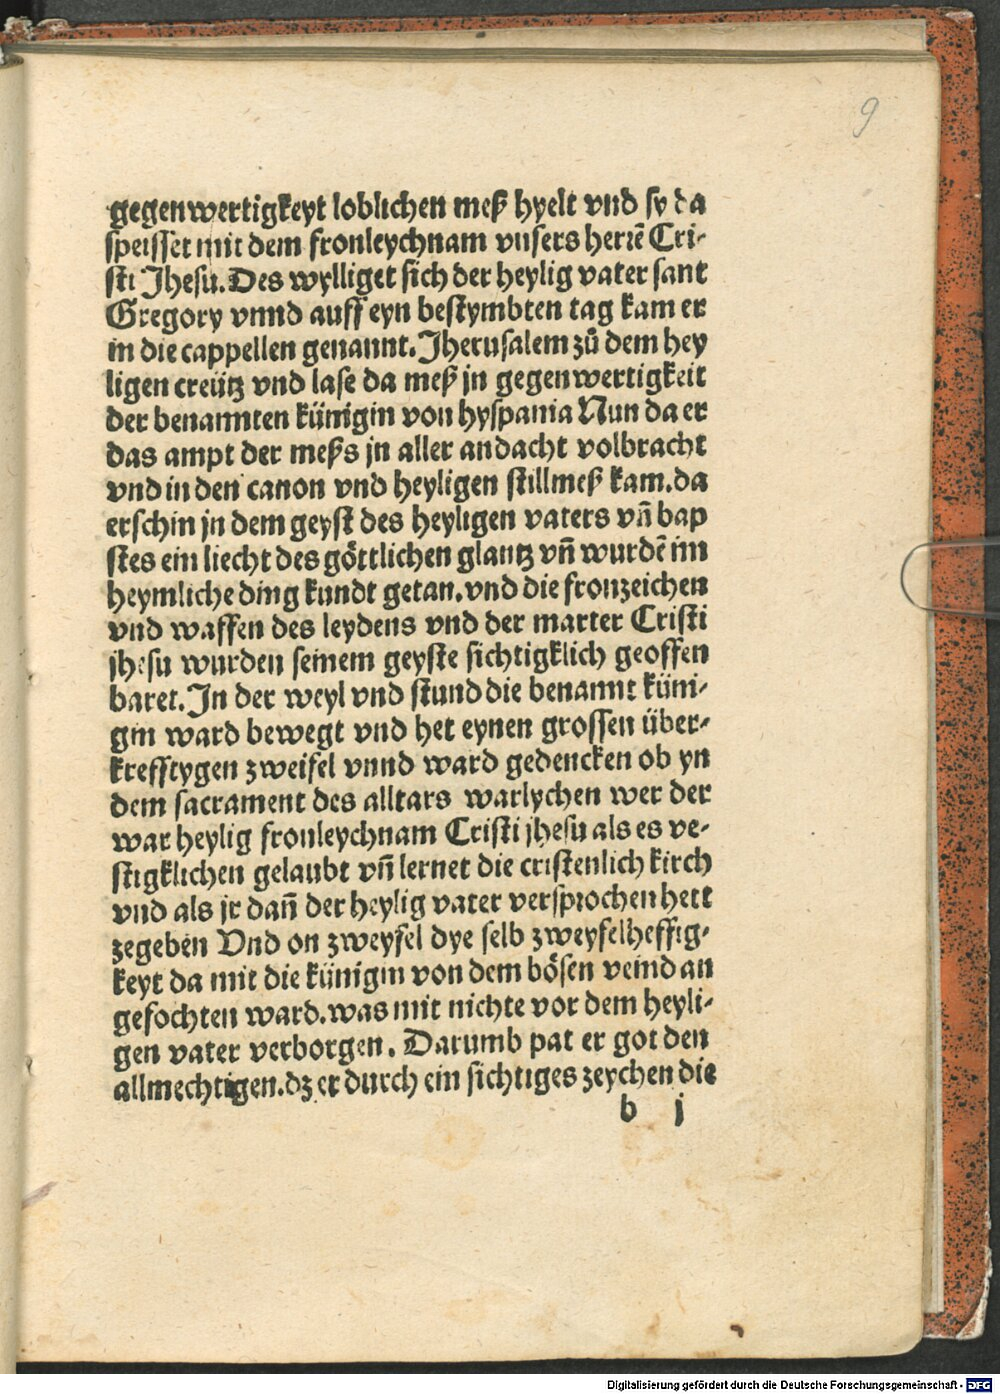 9
gegenwertigkeyt loblichen meß hyelt vnd sy da
speisset mit dem fronleychnam vnsers herrē Cri-
sti Jhesu. Des wylliget sich der heylig vater sant
Gregory vnnd auff eyn bestymbten tag kam er
in die cappellen genannt. Jherusalem zů dem hey
ligen creütz vnd lase da meß jn gegenwertigkeit
der benannten künigin von hyspania Nun da er
das ampt der meßs jn aller andacht volbracht
vnd in den canon vnd heyligen stillmeß kam. da
erschin jn dem geyst des heyligen vaters vñ bap
stes ein liecht des göttlichen glantz vñ wurdē im
heymliche ding kundt getan. vnd die fronzeichen
vnd waffen des leydens vnd der marter Cristi
jhesu wurden seinem geyste sichtigklich geoffen
baret. In der weyl vnd stund die benannt küni-
gin ward bewegt vnd het eynen grossen über-
krefftygen zweifel vnnd ward gedencken ob yn
dem sacrament des alltars warlychen wer der
war heylig fronleychnam Cristi jhesu als es ve-
stigklichen gelaubt vñ lernet die cristenlich kirch
vnd als jr dañ der heylig vater versprochen hett
zegeben Vnd on zweyfel dye selb zweyfelheffig-
keyt da mit die künigin von dem bösen veind an
gefochten ward. was mit nichte vor dem heyli-
gen vater verborgen. Darumb pat er got den
allmechtigen. dz er durch ein sichtiges zeychen die
b j
Digitalisierung gefördert durch die Deutsche Forschungsgemeinschaft - DFG